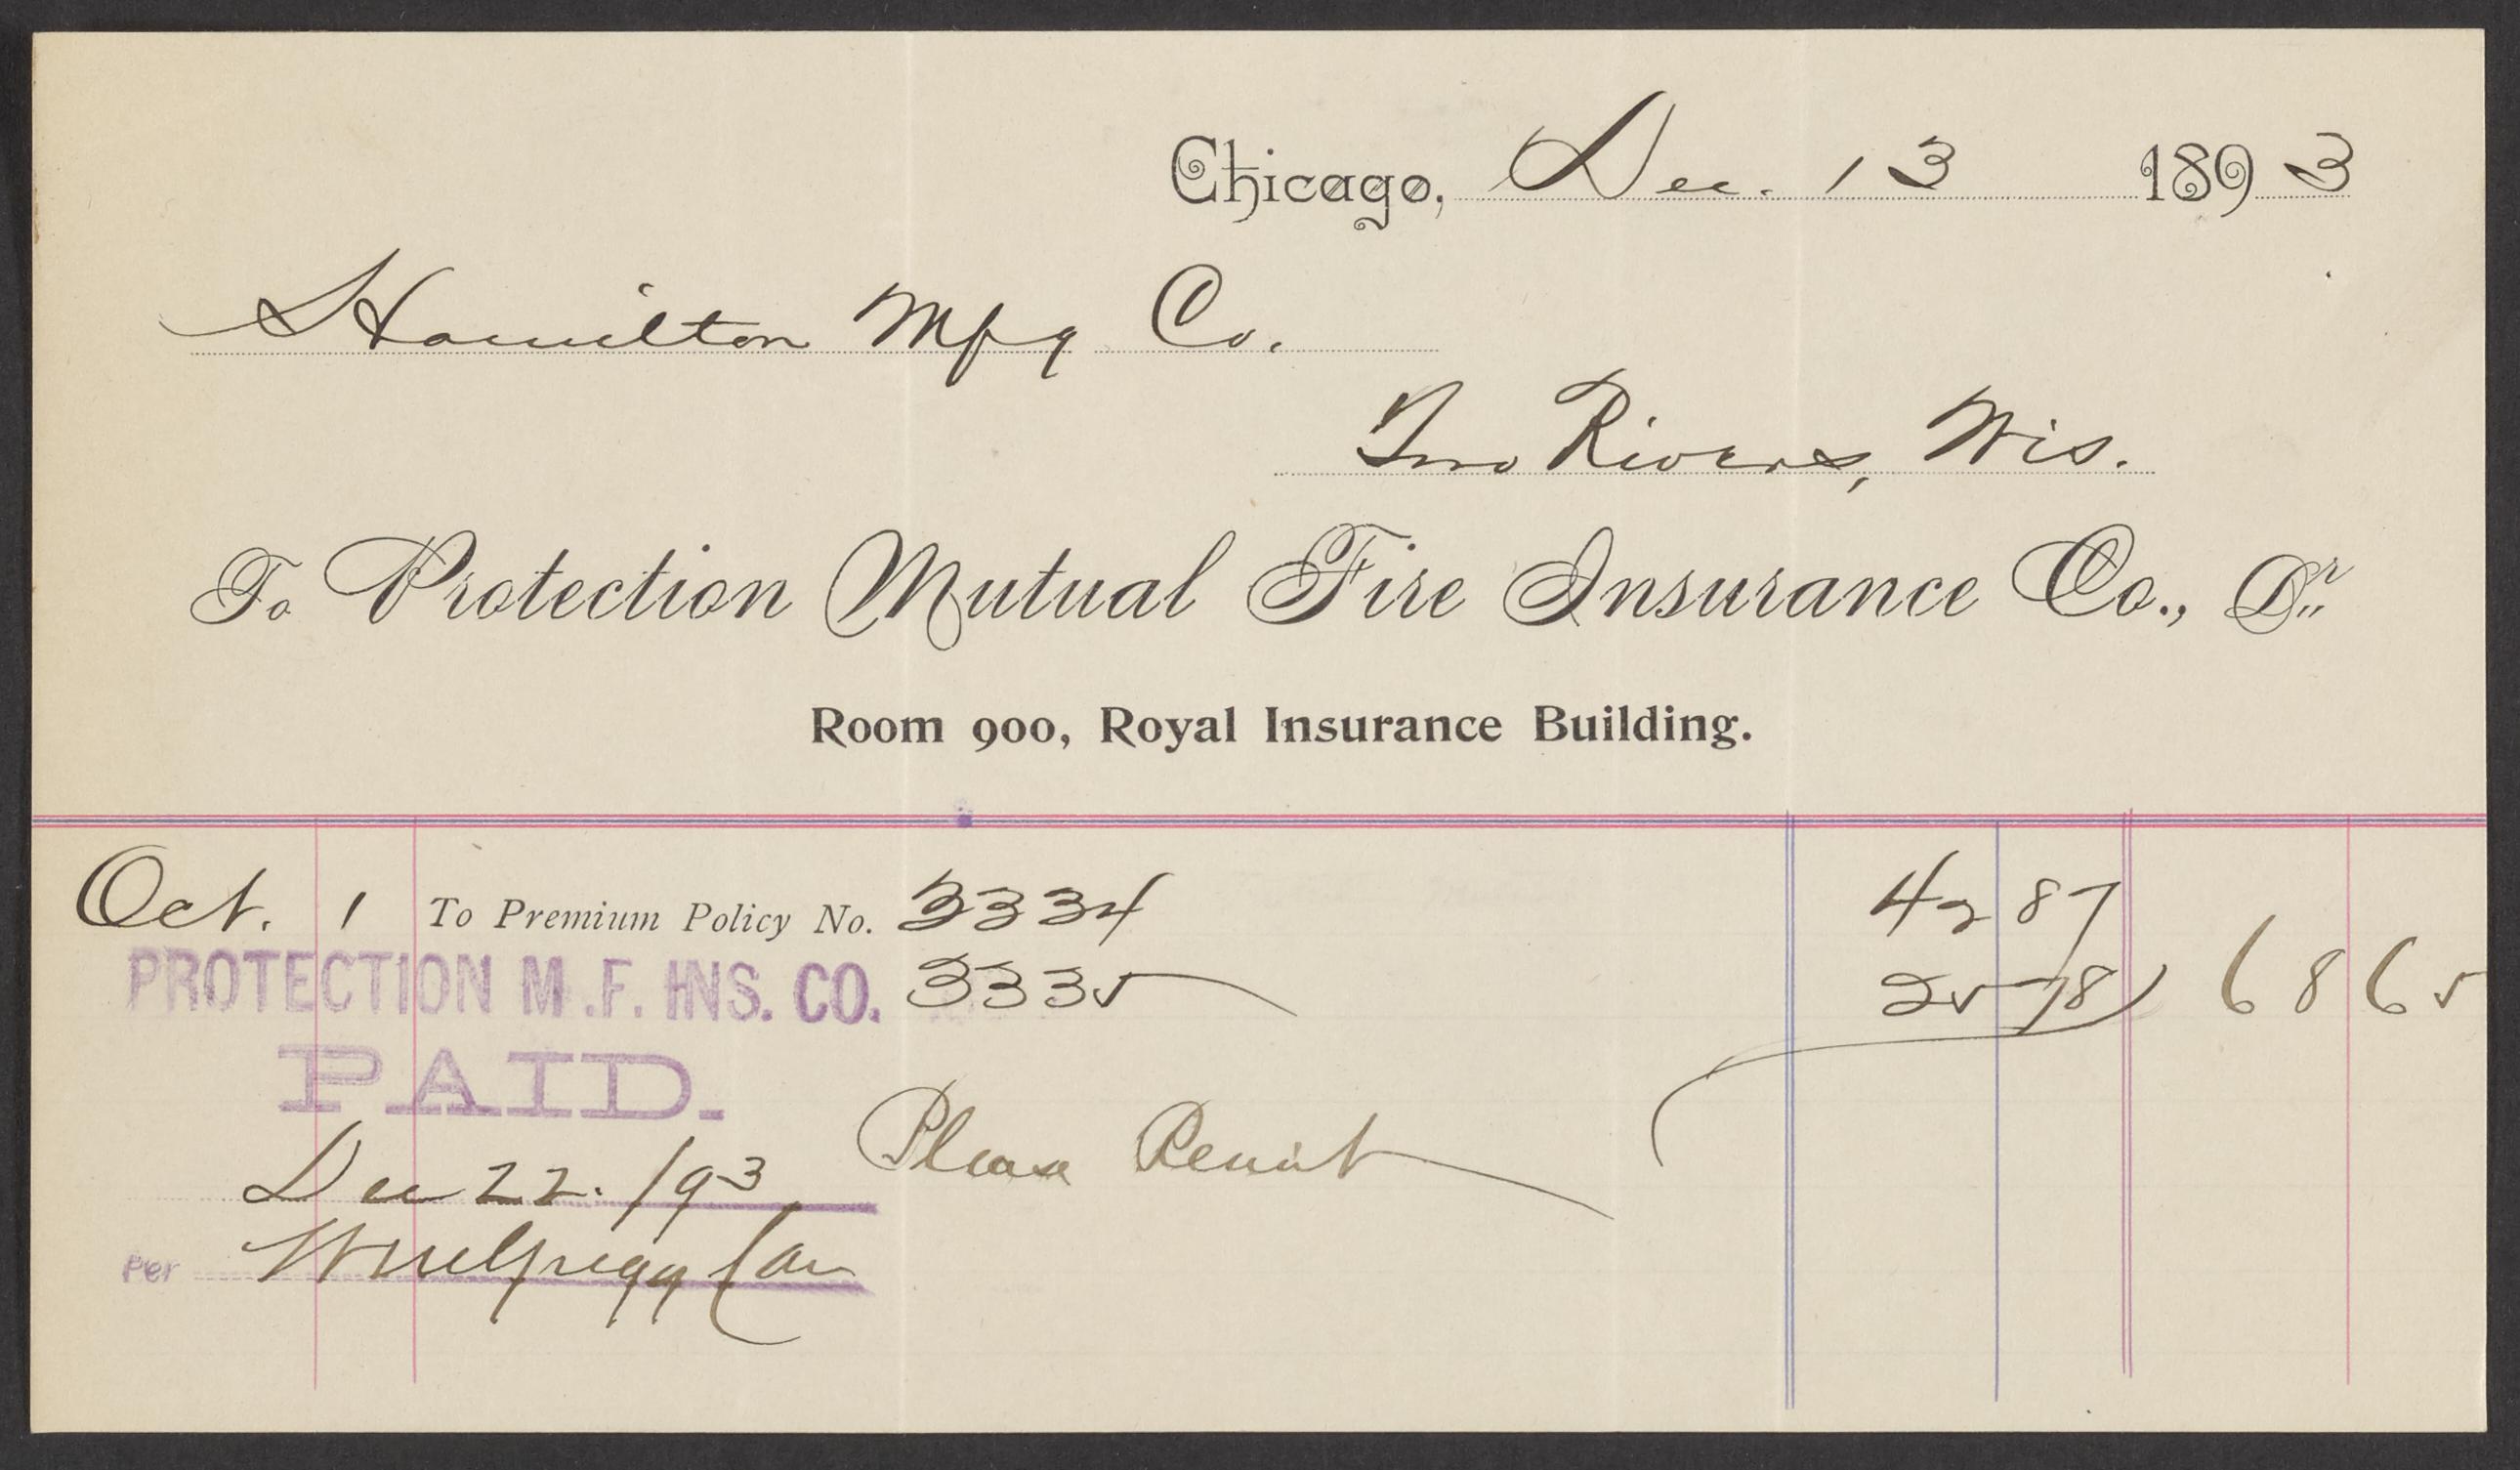 Chicago, Dec. 13 1893
Hamilton Mfg Co.
Two Rivers, Wis.
To Protection Mutual Fire Insurance Co., Dr.
Room 900, Royal Insurance Building.
Oct. 1 To Premium Policy No. 3334 42 87
3335 25 78 68 65
PROTECTION M.F. INS. CO.
PAID.
Please Remit
Dec 22. /93
Per